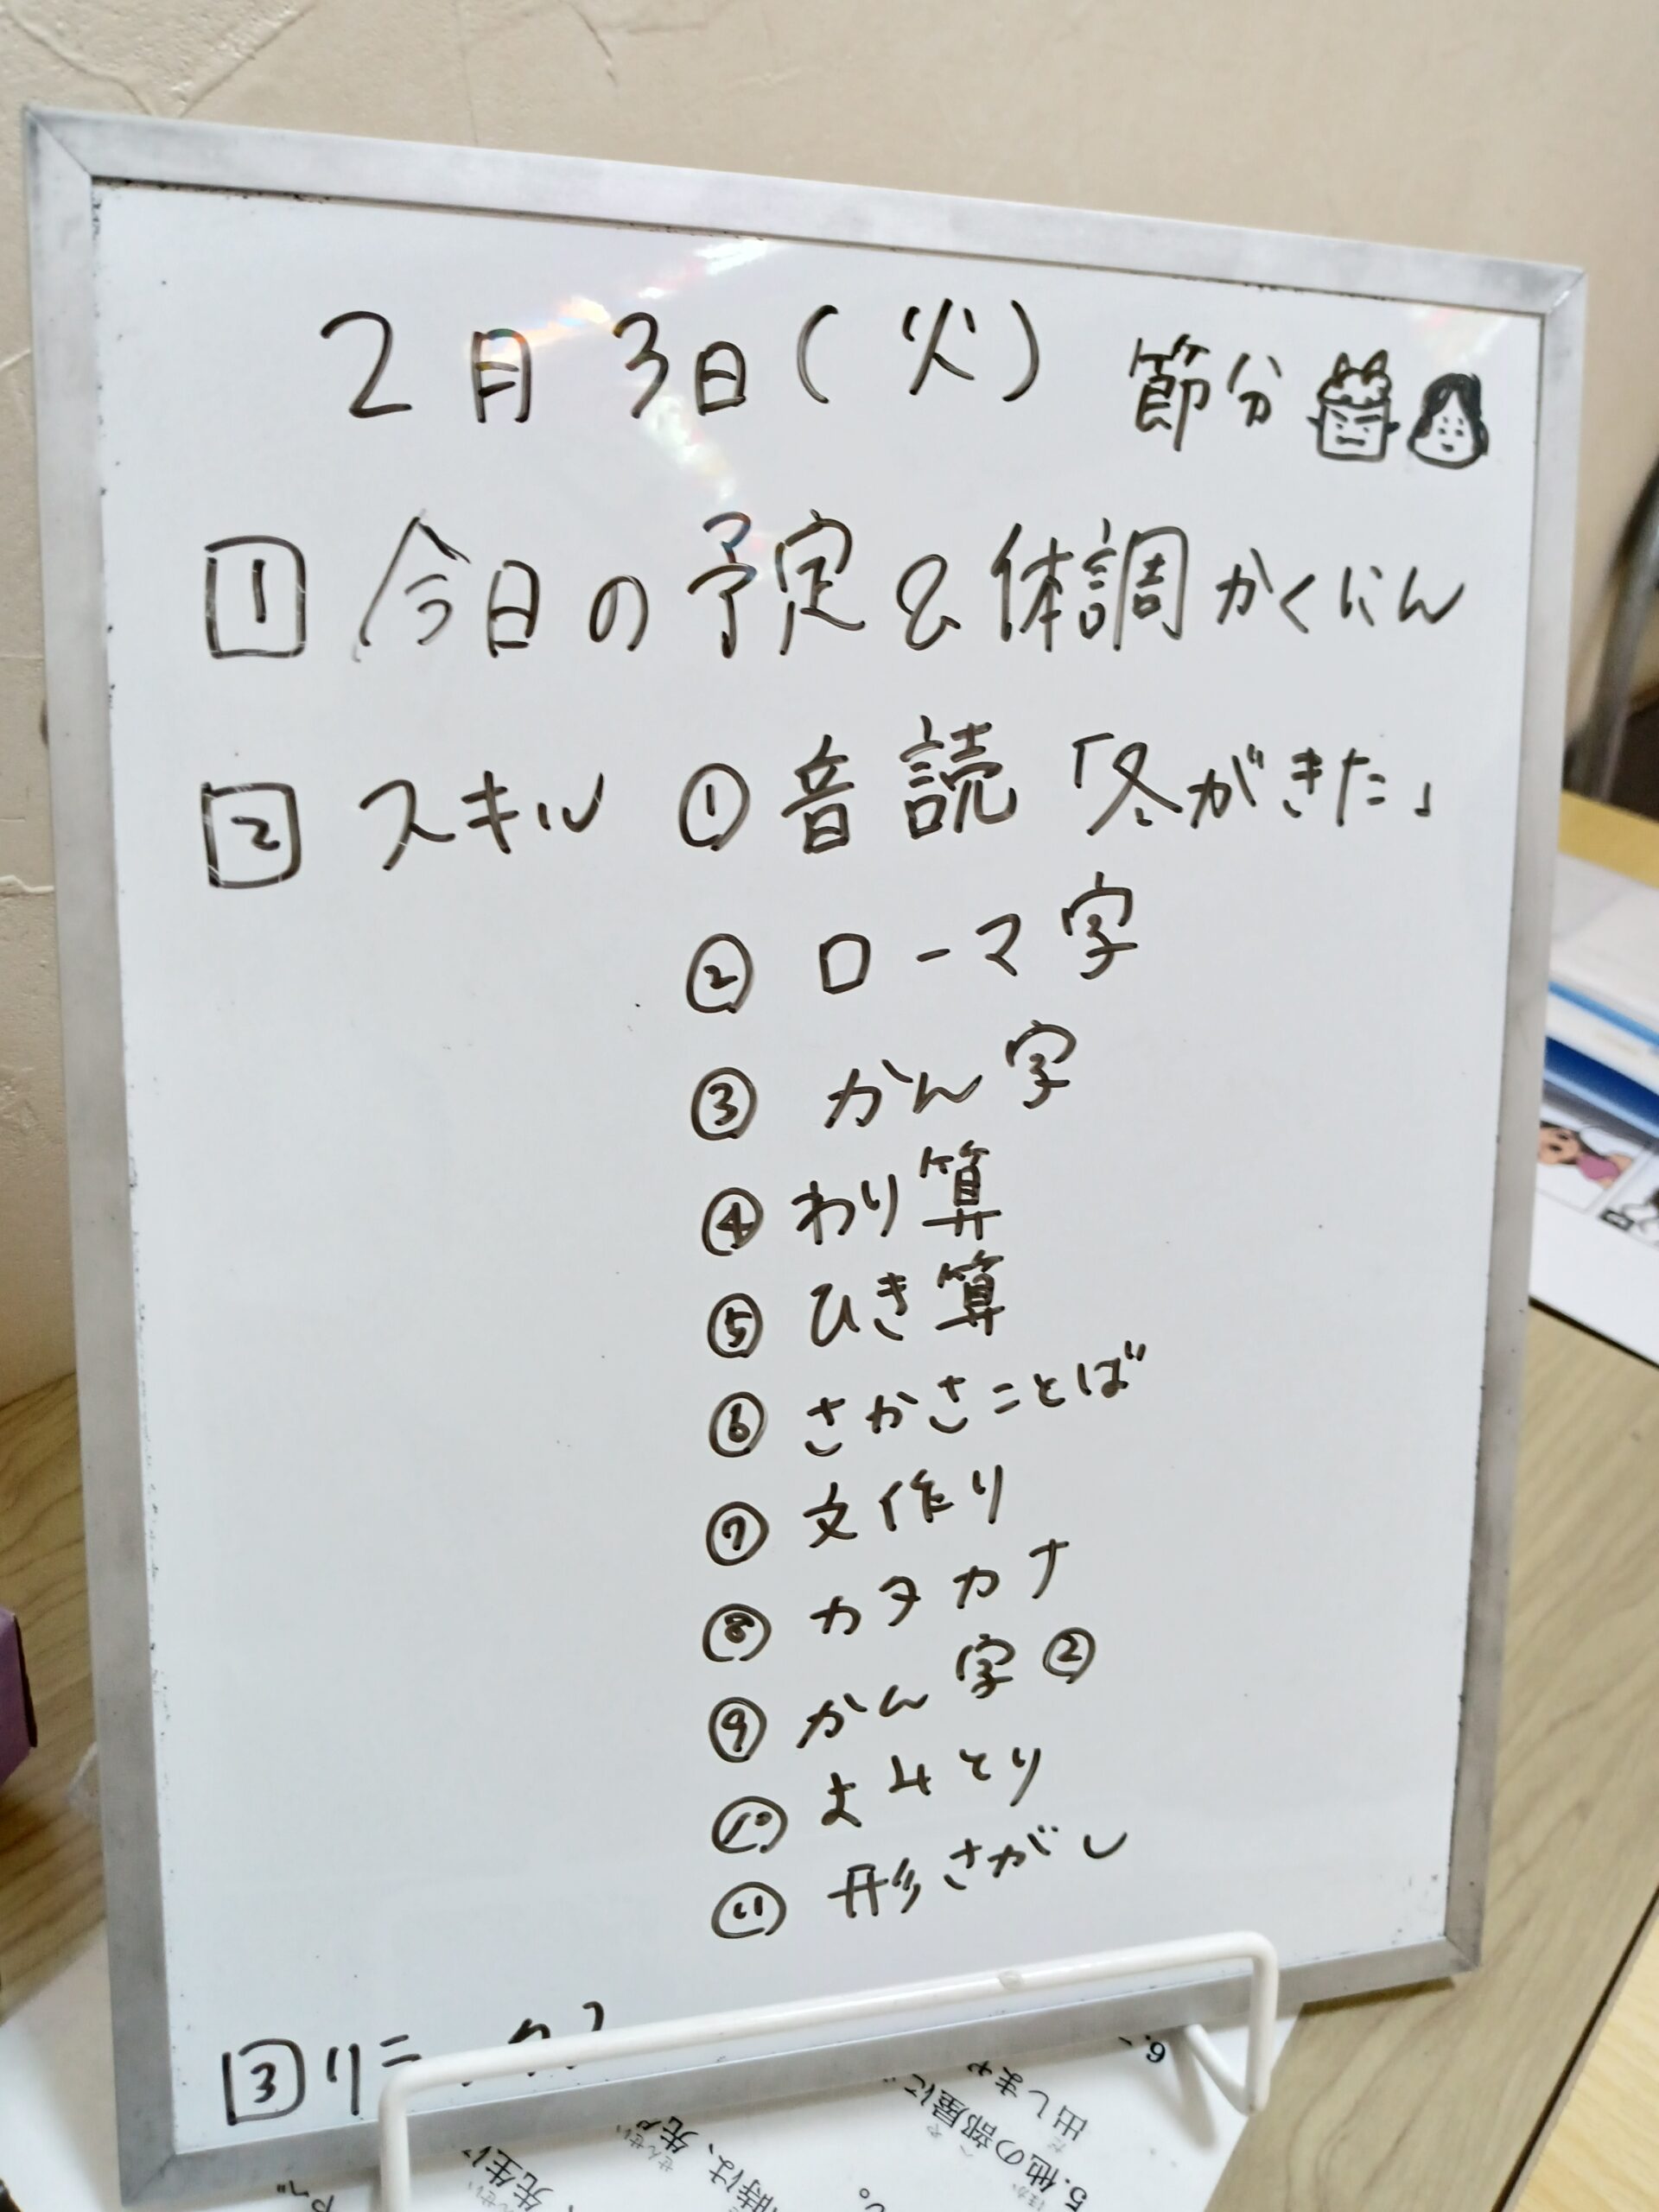 2月3日(火) 節分
1 今日の予定&体調かくにん
2 スキル ①音読「冬がきた」
② ローマ字
③ かん字
④ わり算
⑤ ひき算
⑥ さかさことば
⑦ 文作り
⑧ カタカナ
⑨ かん字②
⑩ よみとり
⑪ 形さがし
3 リニ
6.
出します
5.他の部屋に
時は、先
先生に